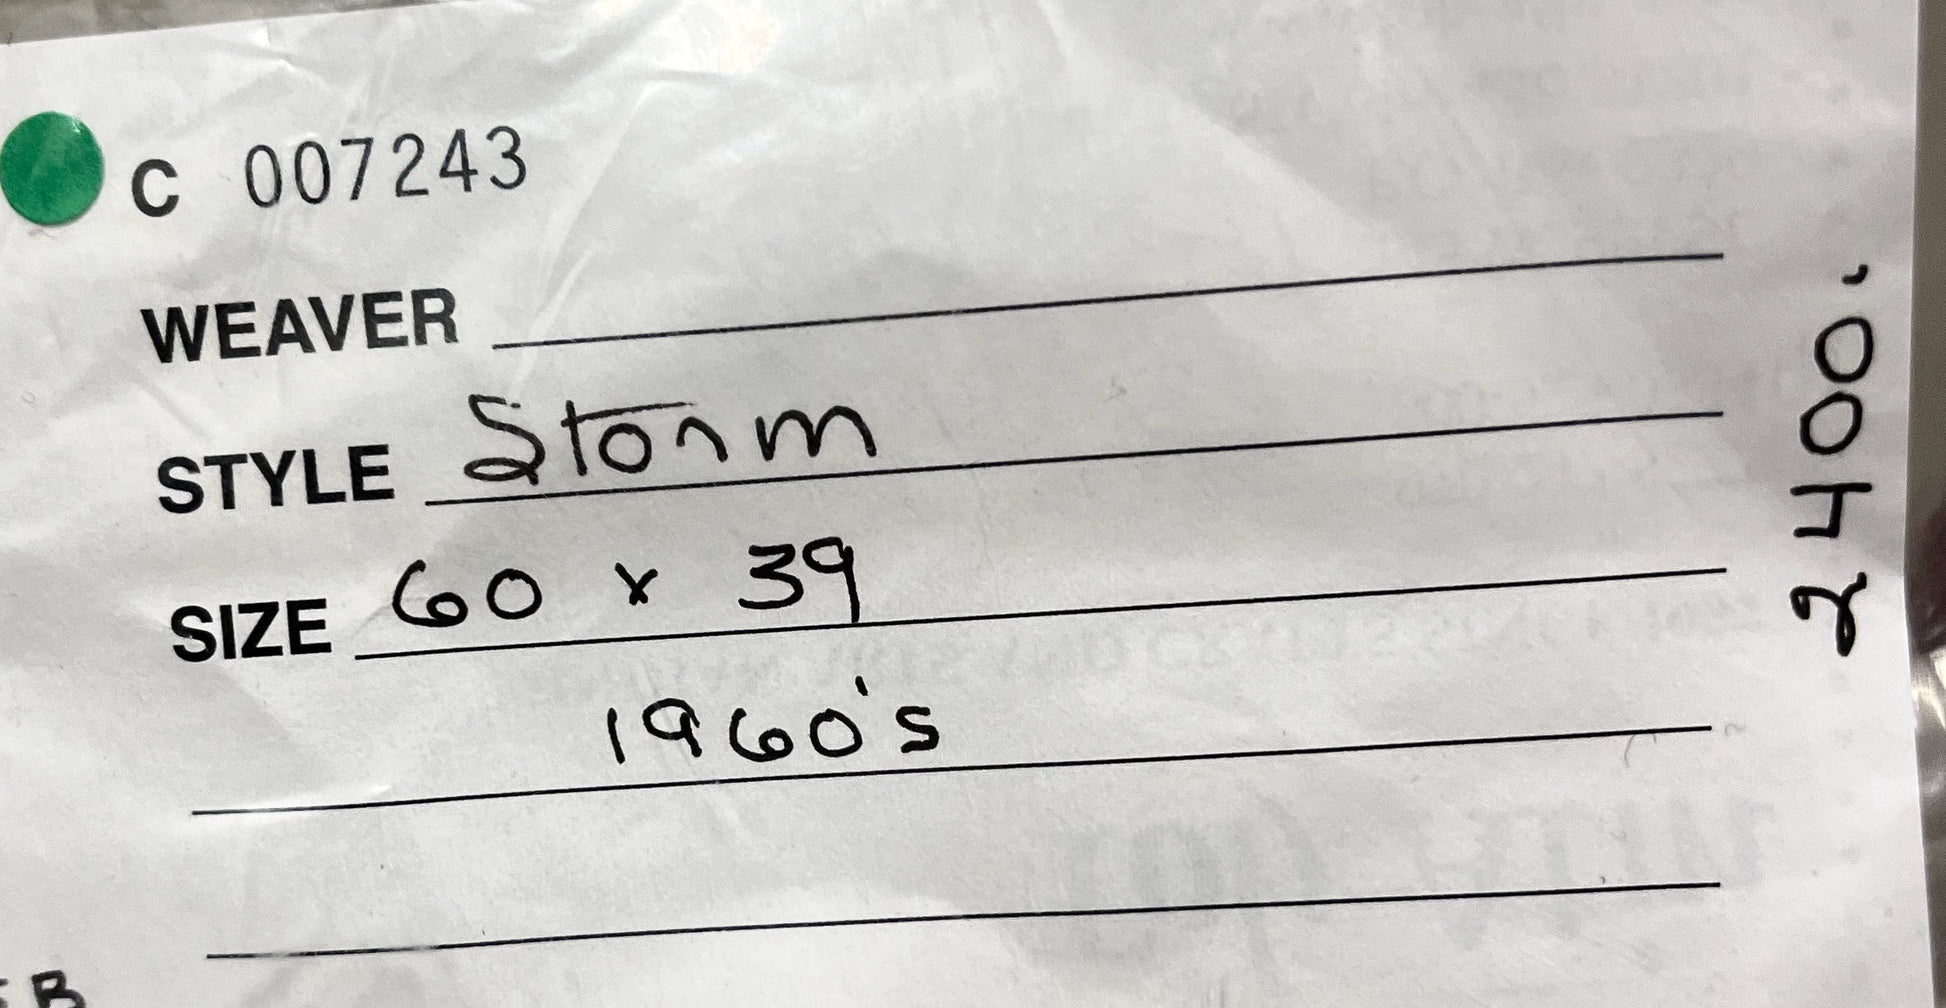 C 007243
WEAVER
STYLE Storm
SIZE 60 x 39
1960's
2400.
B